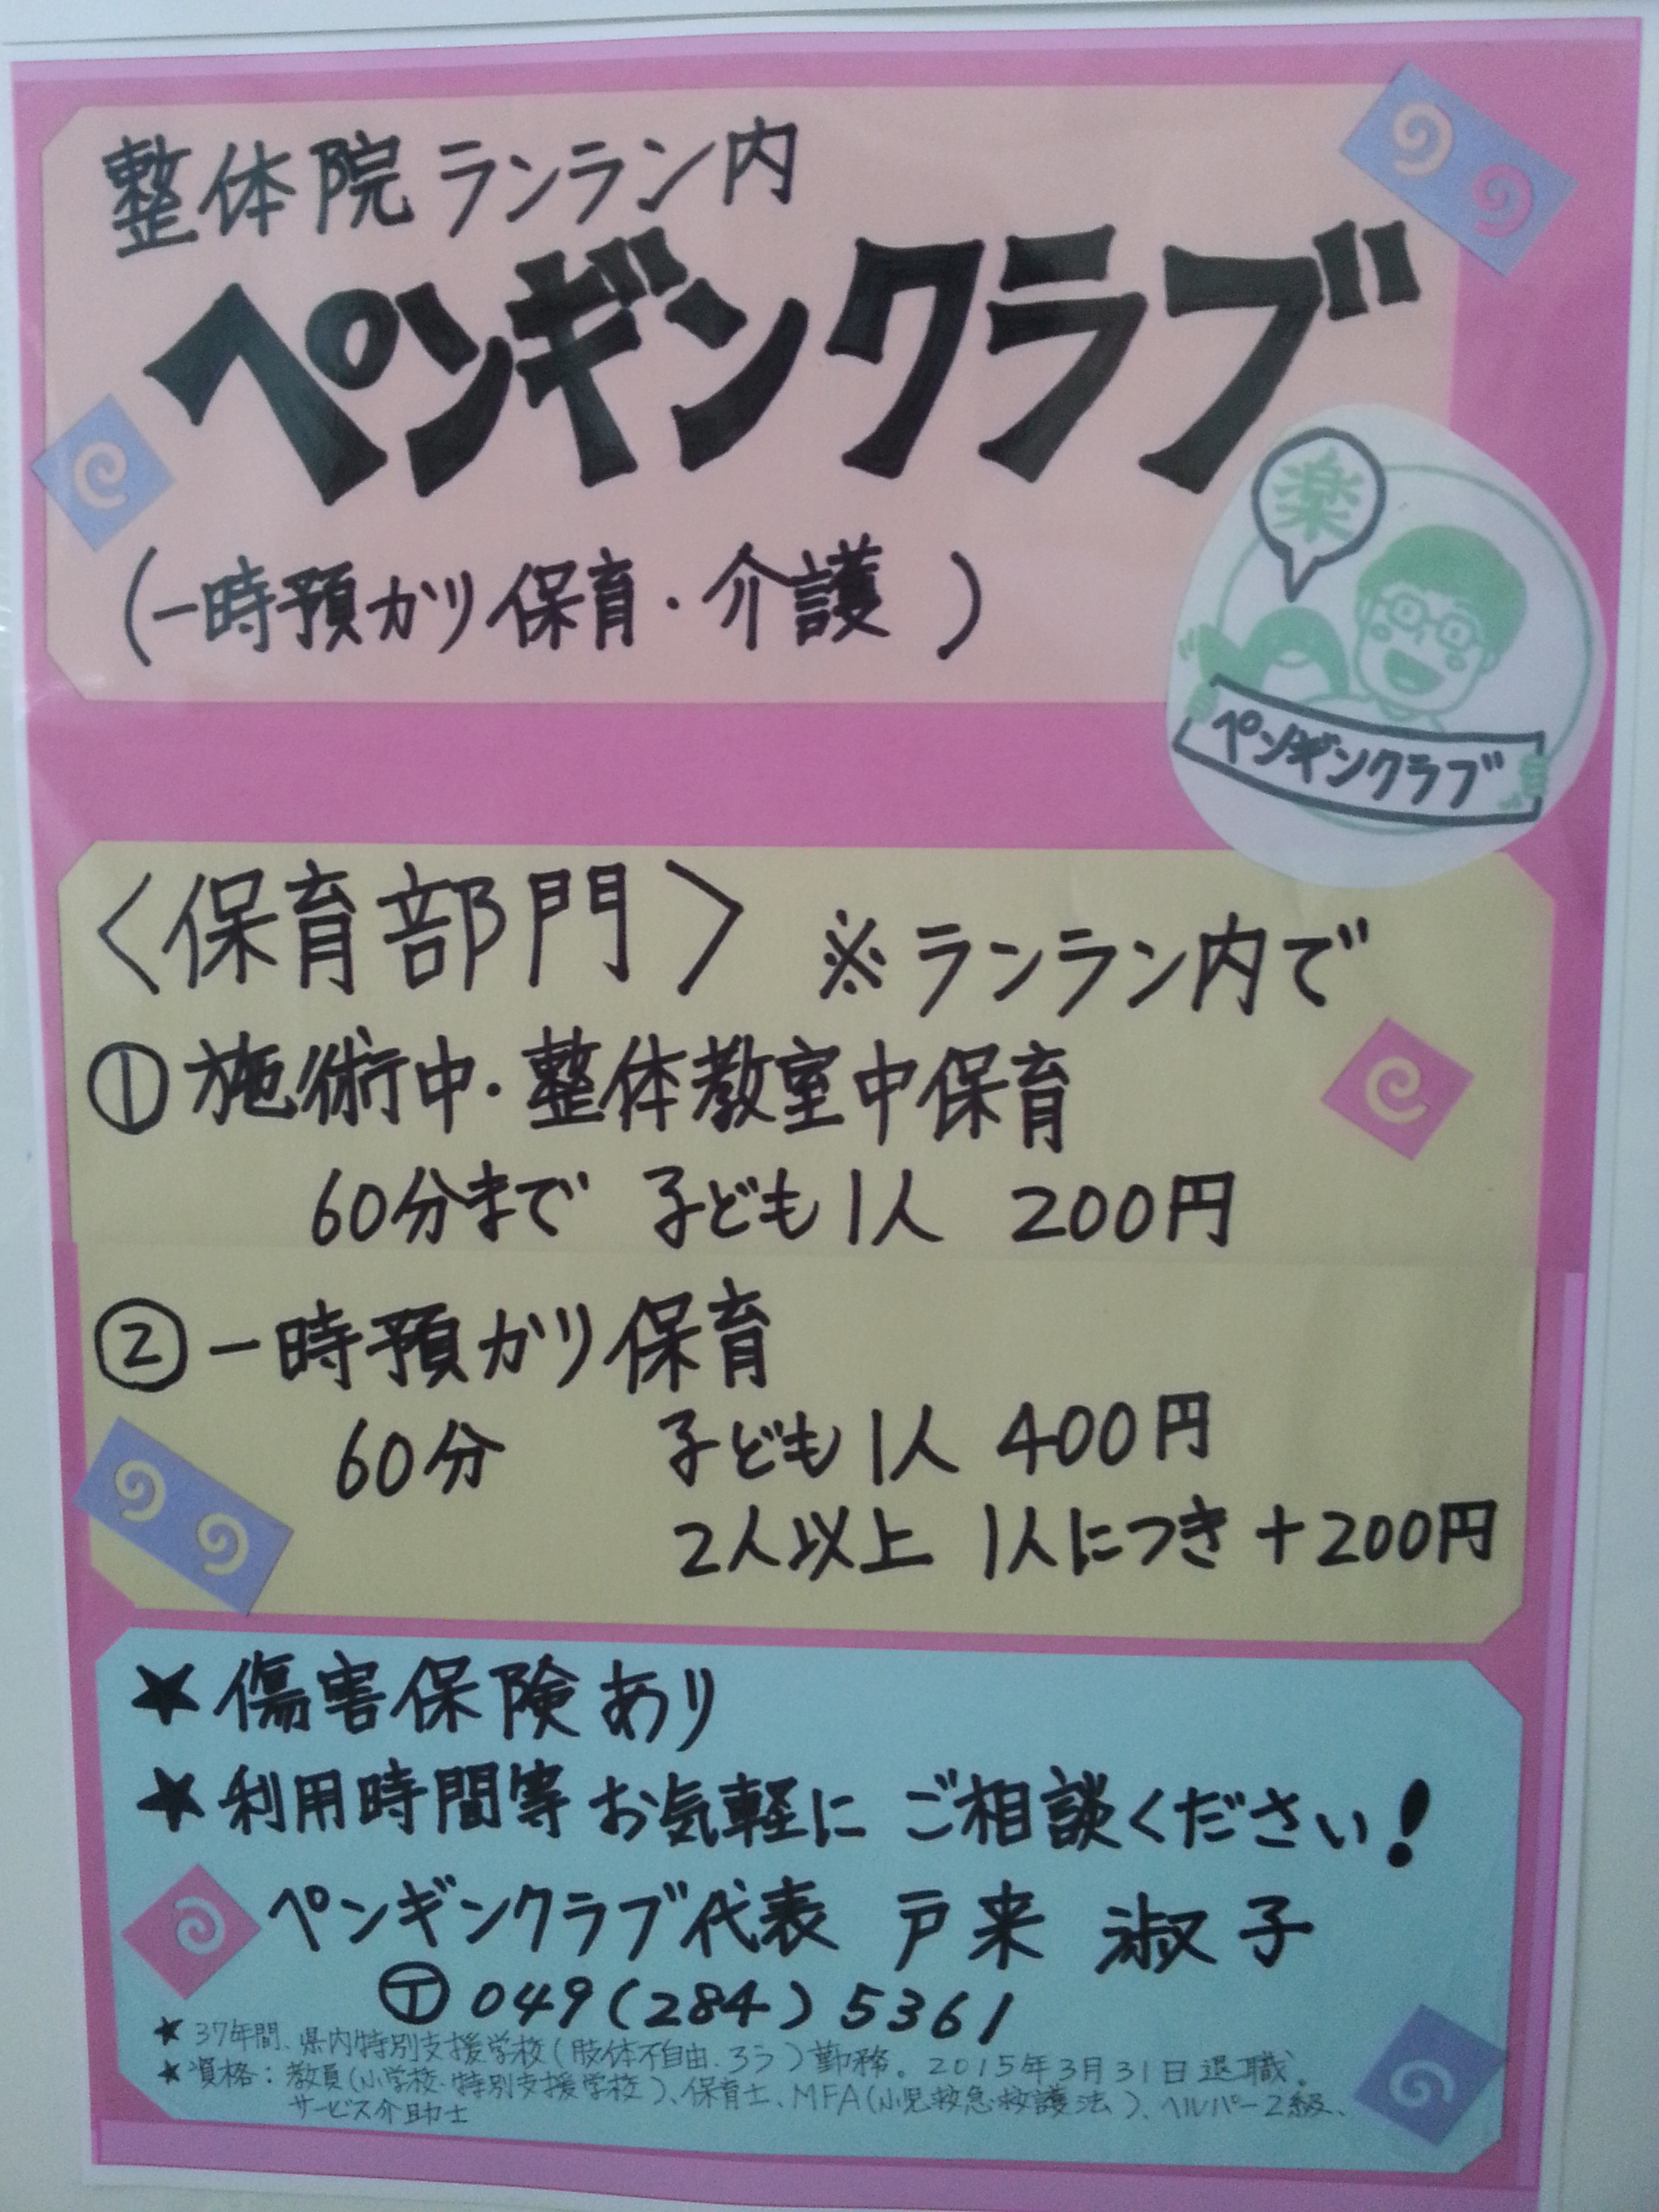 整体院ランラン内
ペンギンクラブ
(一時預カリ保育・介護)
楽
ペンギンクラブ
〈保育部門〉 ※ランラン内で
①施術中・整体教室中保育
60分まで 子ども1人 200円
②一時預カリ保育
60分 子ども1人 400円
2人以上 1人につき+200円
★傷害保険あり
★利用時間等お気軽にご相談ください!
ペンギンクラブ代表 戸来 淑子
Ⓣ049(284)5361
★37年間、県内特別支援学校(肢体不自由、ろう)勤務。2015年3月31日退職。
★資格:教員(小学校・特別支援学校)、保育士、MFA(小児救急救護法)、ヘルパー2級、
サービス介助士